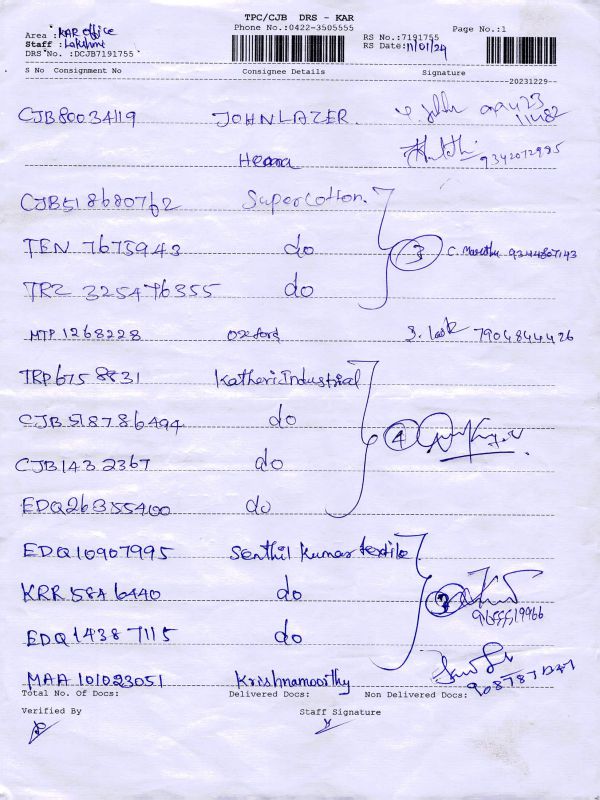 TPC/CJB DRS - KAR
Phone No.:0422-3505555
Page No.:1
Area : KAR office
RS No.:7191755
Staff : Lakshmi
RS Date: 11/01/24
DRS No. :DCJB7191755
S No Consignment No Consignee Details Signature
20231229
CJB80034119 JOHN LAZER.
Heera 9342072995
CJB518680762 Supercotton.
TEN 7675943 do 3 C. Marutha 9344807143
TRZ 325476355 do
MTP 1268228 Oxford 7904844426
TRP6758831 Katheri Industrial
CJB518786494 do 4
CJB1432367 do
EDQ26355400 do
EDQ10907995 Senthil Kumar textile
KRR158A6440 do 3
EDQ14387115 do 9655519966
MAA 101023051 Krishnamoorthy
Total No. Of Docs: Delivered Docs: Non Delivered Docs:
Verified By Staff Signature